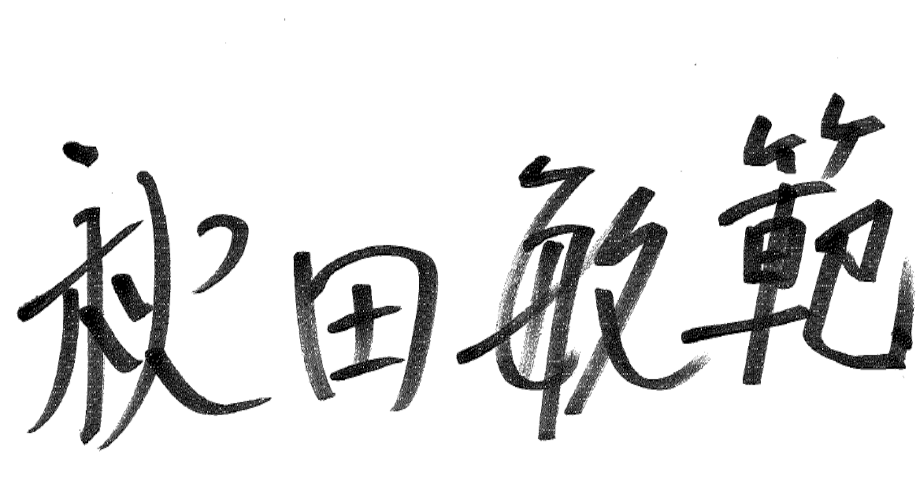 秋田敏範